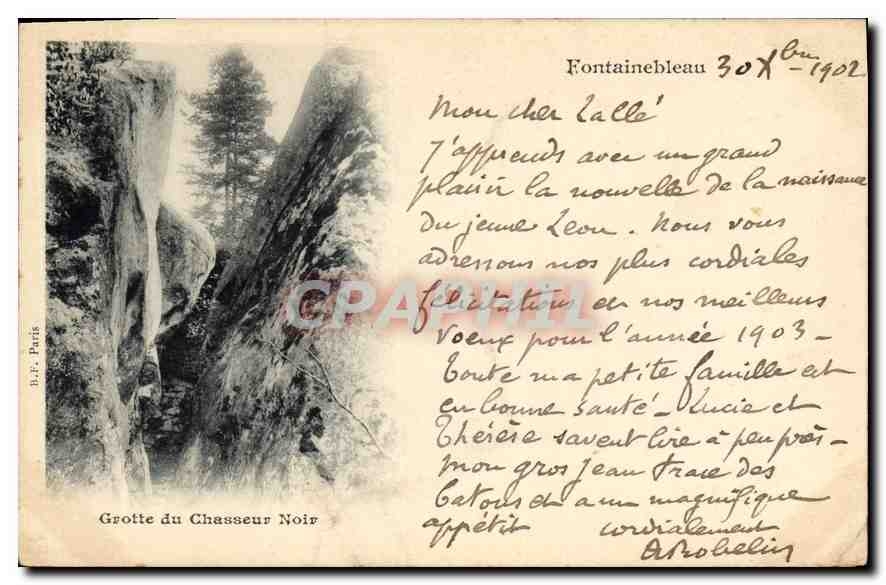 Fontainebleau 30 Xbre 1902
Mon cher Lallé
J'apprends avec un grand
plaisir la nouvelle de la naissance
du jeune Leon. Nous vous
adressons nos plus cordiales
félicitations et nos meilleurs
voeux pour l'année 1903 -
Toute ma petite famille est
en bonne santé - Lucie et
Thérèse savent lire à peu près -
Mon gros Jean trace des
batons et a un magnifique
appétit cordialement
Robelin
B.F. Paris
Grotte du Chasseur Noir
CPAPHIL